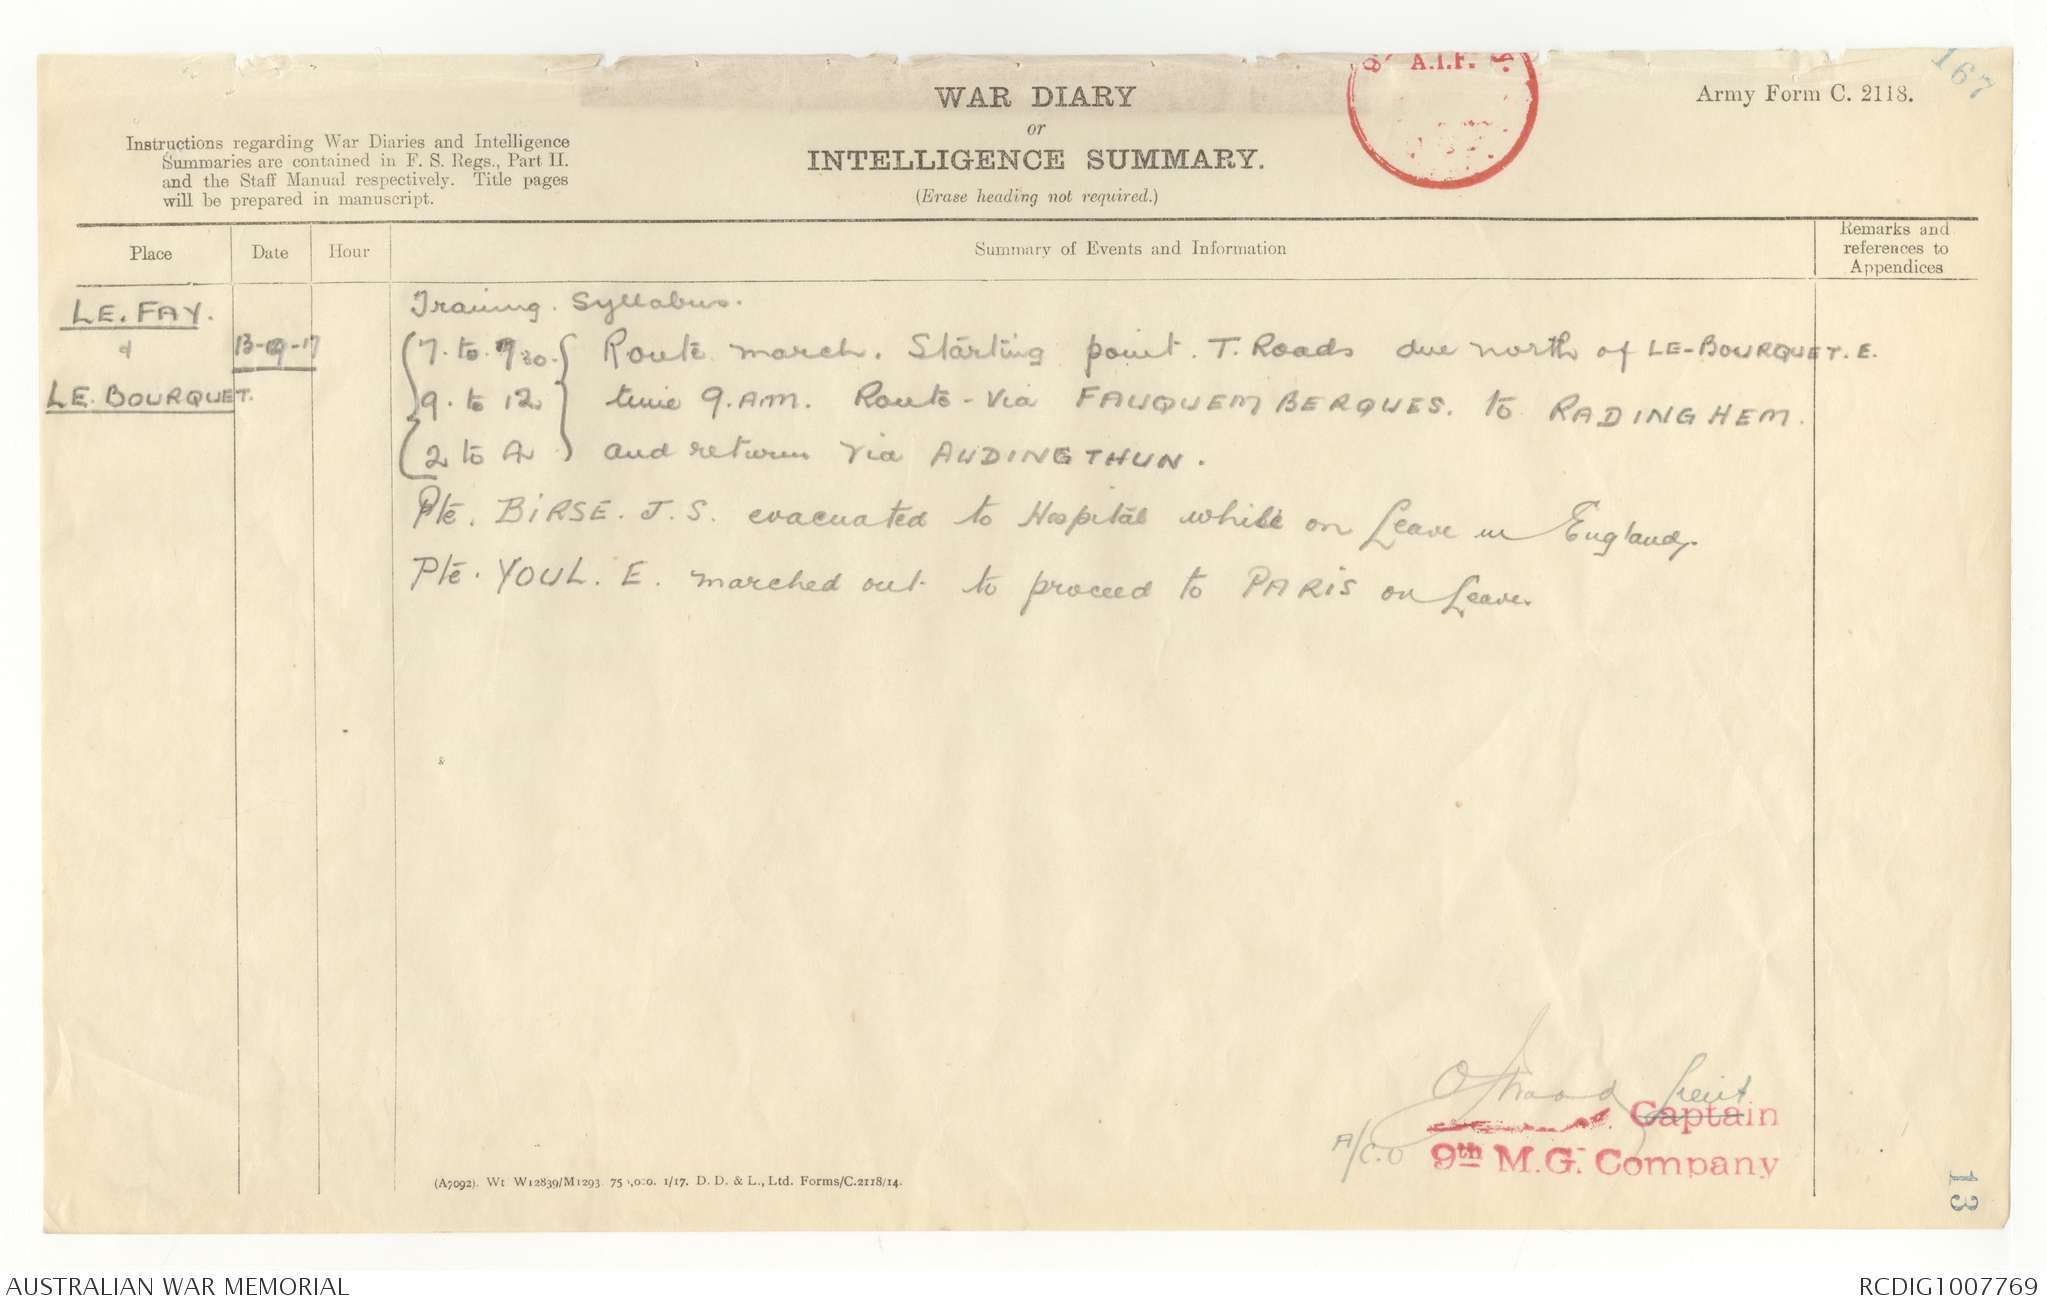 167
A.I.F.
WAR DIARY
or
INTELLIGENCE SUMMARY.
(Erase heading not required.)
Army Form C. 2118.
Instructions regarding War Diaries and Intelligence
Summaries are contained in F. S. Regs., Part II.
and the Staff Manual respectively. Title pages
will be prepared in manuscript.
Place
Date
Hour
Summary of Events and Information
Remarks and
references to
Appendices
LE. FAY.
&
LE. BOURQUET.
13-9-17
Training. Syllabus.
7. to. 7.30. Route march. Starting point. T. Roads due north of LE-BOURQUET. E.
9. to 12 time 9.A.M. Route - Via FAUQUEMBERQUES. to RADINGHEM.
2 to 4 and return via AUDINGTHUN.
Pte. BIRSE. J.S. evacuated to Hospital while on Leave in England.
Pte. YOUL. E. marched out to proceed to PARIS on Leave.
Lieut
Captain
A/C.O
9th M.G. Company
(A7092). Wt W12839/M1293 75 ,000. 1/17. D. D. & L., Ltd. Forms/C.2118/14.
13
AUSTRALIAN WAR MEMORIAL
RCDIG1007769